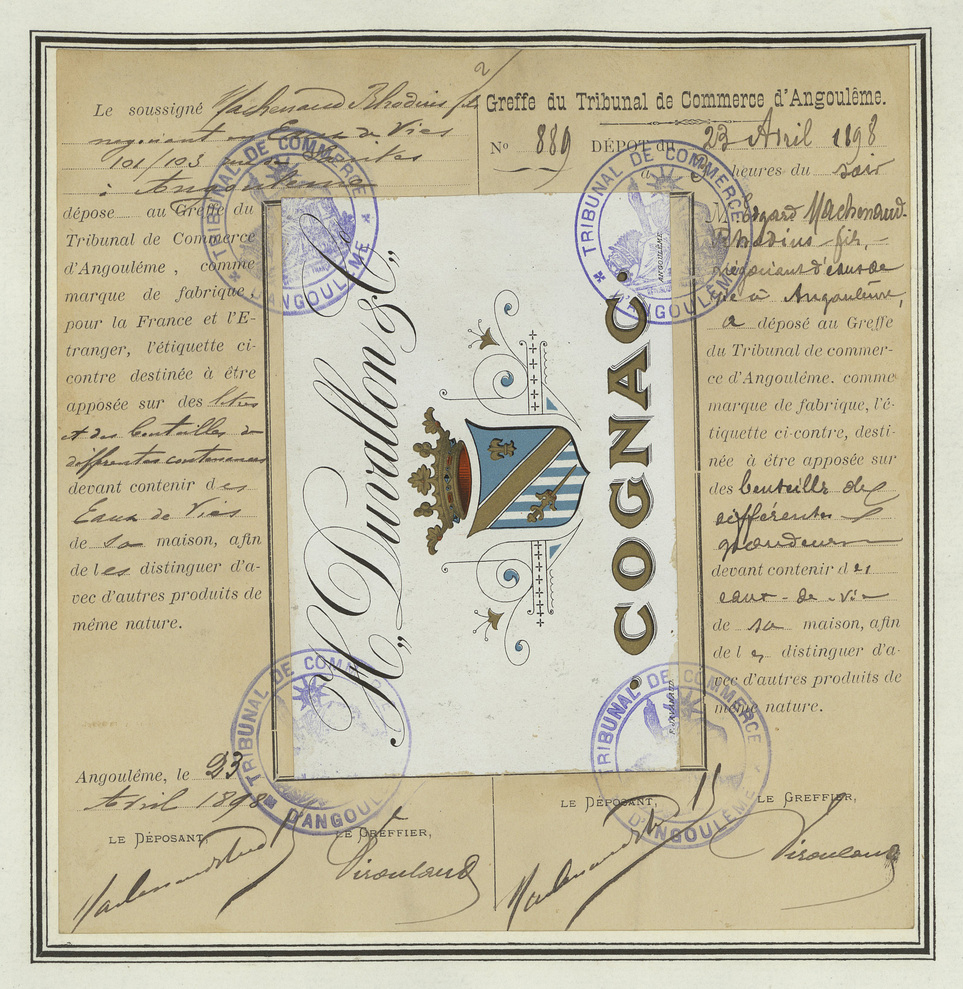 2/
Le soussigné Machenaud Rhodius fils
negociant en Eaux de Vies
101/103 rue de
à Angouleme
dépose au Greffe du
Tribunal de Commerce
d'Angouléme, comme
marque de fabrique
pour la France et l'E-
tranger, l'étiquette ci-
contre destinée à être
apposée sur des litres
et des bouteilles de
differentes contenances
devant contenir des
Eaux de Vies
de sa maison, afin
de les distinguer d'a-
vec d'autres produits de
même nature.
Angouléme, le 23
Avril 1898
LE DÉPOSANT,
LE GREFFIER,
Greffe du Tribunal de Commerce d'Angoulême.
No 889 DÉPOT du 23 Avril 1898
à 3 heures du soir
M. Edgard Machenaud-
Rhodius fils,
négociant d'eaux de
vie à Angoulême,
a déposé au Greffe
du Tribunal de commer-
ce d'Angouléme. comme
marque de fabrique, l'é-
tiquette ci-contre, desti-
née à être apposée sur
des bouteilles de
différentes
grandeurs
devant contenir des
eaux-de-vie
de sa maison, afin
de les distinguer d'a-
vec d'autres produits de
même nature.
LE DÉPOSANT,
LE GREFFIER,
„H. Duvallon & Co„
• COGNAC •
ANGOULÊME
TRIBUNAL DE COMMERCE
D'ANGOULÊME
TRIBUNAL DE COMMERCE
D'ANGOULÊME
TRIBUNAL DE COMMERCE
D'ANGOULÊME
TRIBUNAL DE COMMERCE
D'ANGOULÊME